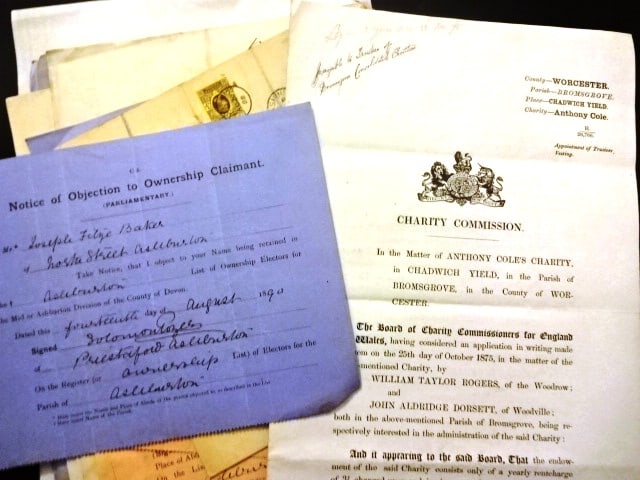 C 2.
Notice of Objection to Ownership Claimant.
(PARLIAMENTARY.)
Joseph Filze Baker
of North Street Ashburton
Take Notice, that I object to your Name being retained in
Ashburton List of Ownership Electors for
the Mid or Ashburton Division of the County of Devon.
Dated this fourteenth day of August 1890
Signed
of Priestaford Ashburton
On the Register (or ownership List) of Electors for the
Parish of Ashburton
Place of
to the Lis
payable to Trustees of
Bromsgrove Consolidated Charities
County—WORCESTER.
Parish—BROMSGROVE.
Place—CHADWICH YIELD.
Charity—Anthony Cole.
Appointment of Trustees.
Vesting.
CHARITY COMMISSION.
In the Matter of ANTHONY COLE'S CHARITY,
in CHADWICH YIELD, in the Parish of
BROMSGROVE, in the County of WOR-
CESTER.
The Board of Charity Commissioners for England
Wales, having considered an application in writing made
em on the 25th day of October 1875, in the matter of the
mentioned Charity, by
WILLIAM TAYLOR ROGERS, of the Woodrow;
and
JOHN ALDRIDGE DORSETT, of Woodville;
both in the above-mentioned Parish of Bromsgrove, being re-
spectively interested in the administration of the said Charity:
And it appearing to the said Board, That the endow-
ment of the said Charity consists only of a yearly rentcharge